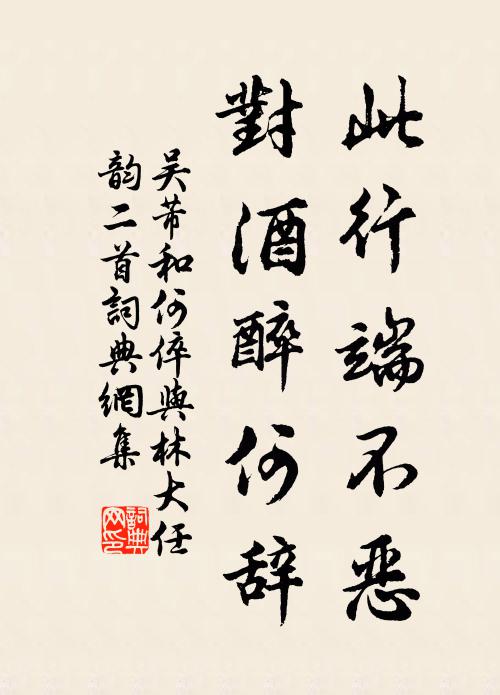 此行端不恶
對酒醉何辞
吴芾和何倅與林大任
韵二首詞典網集
詞典
网印